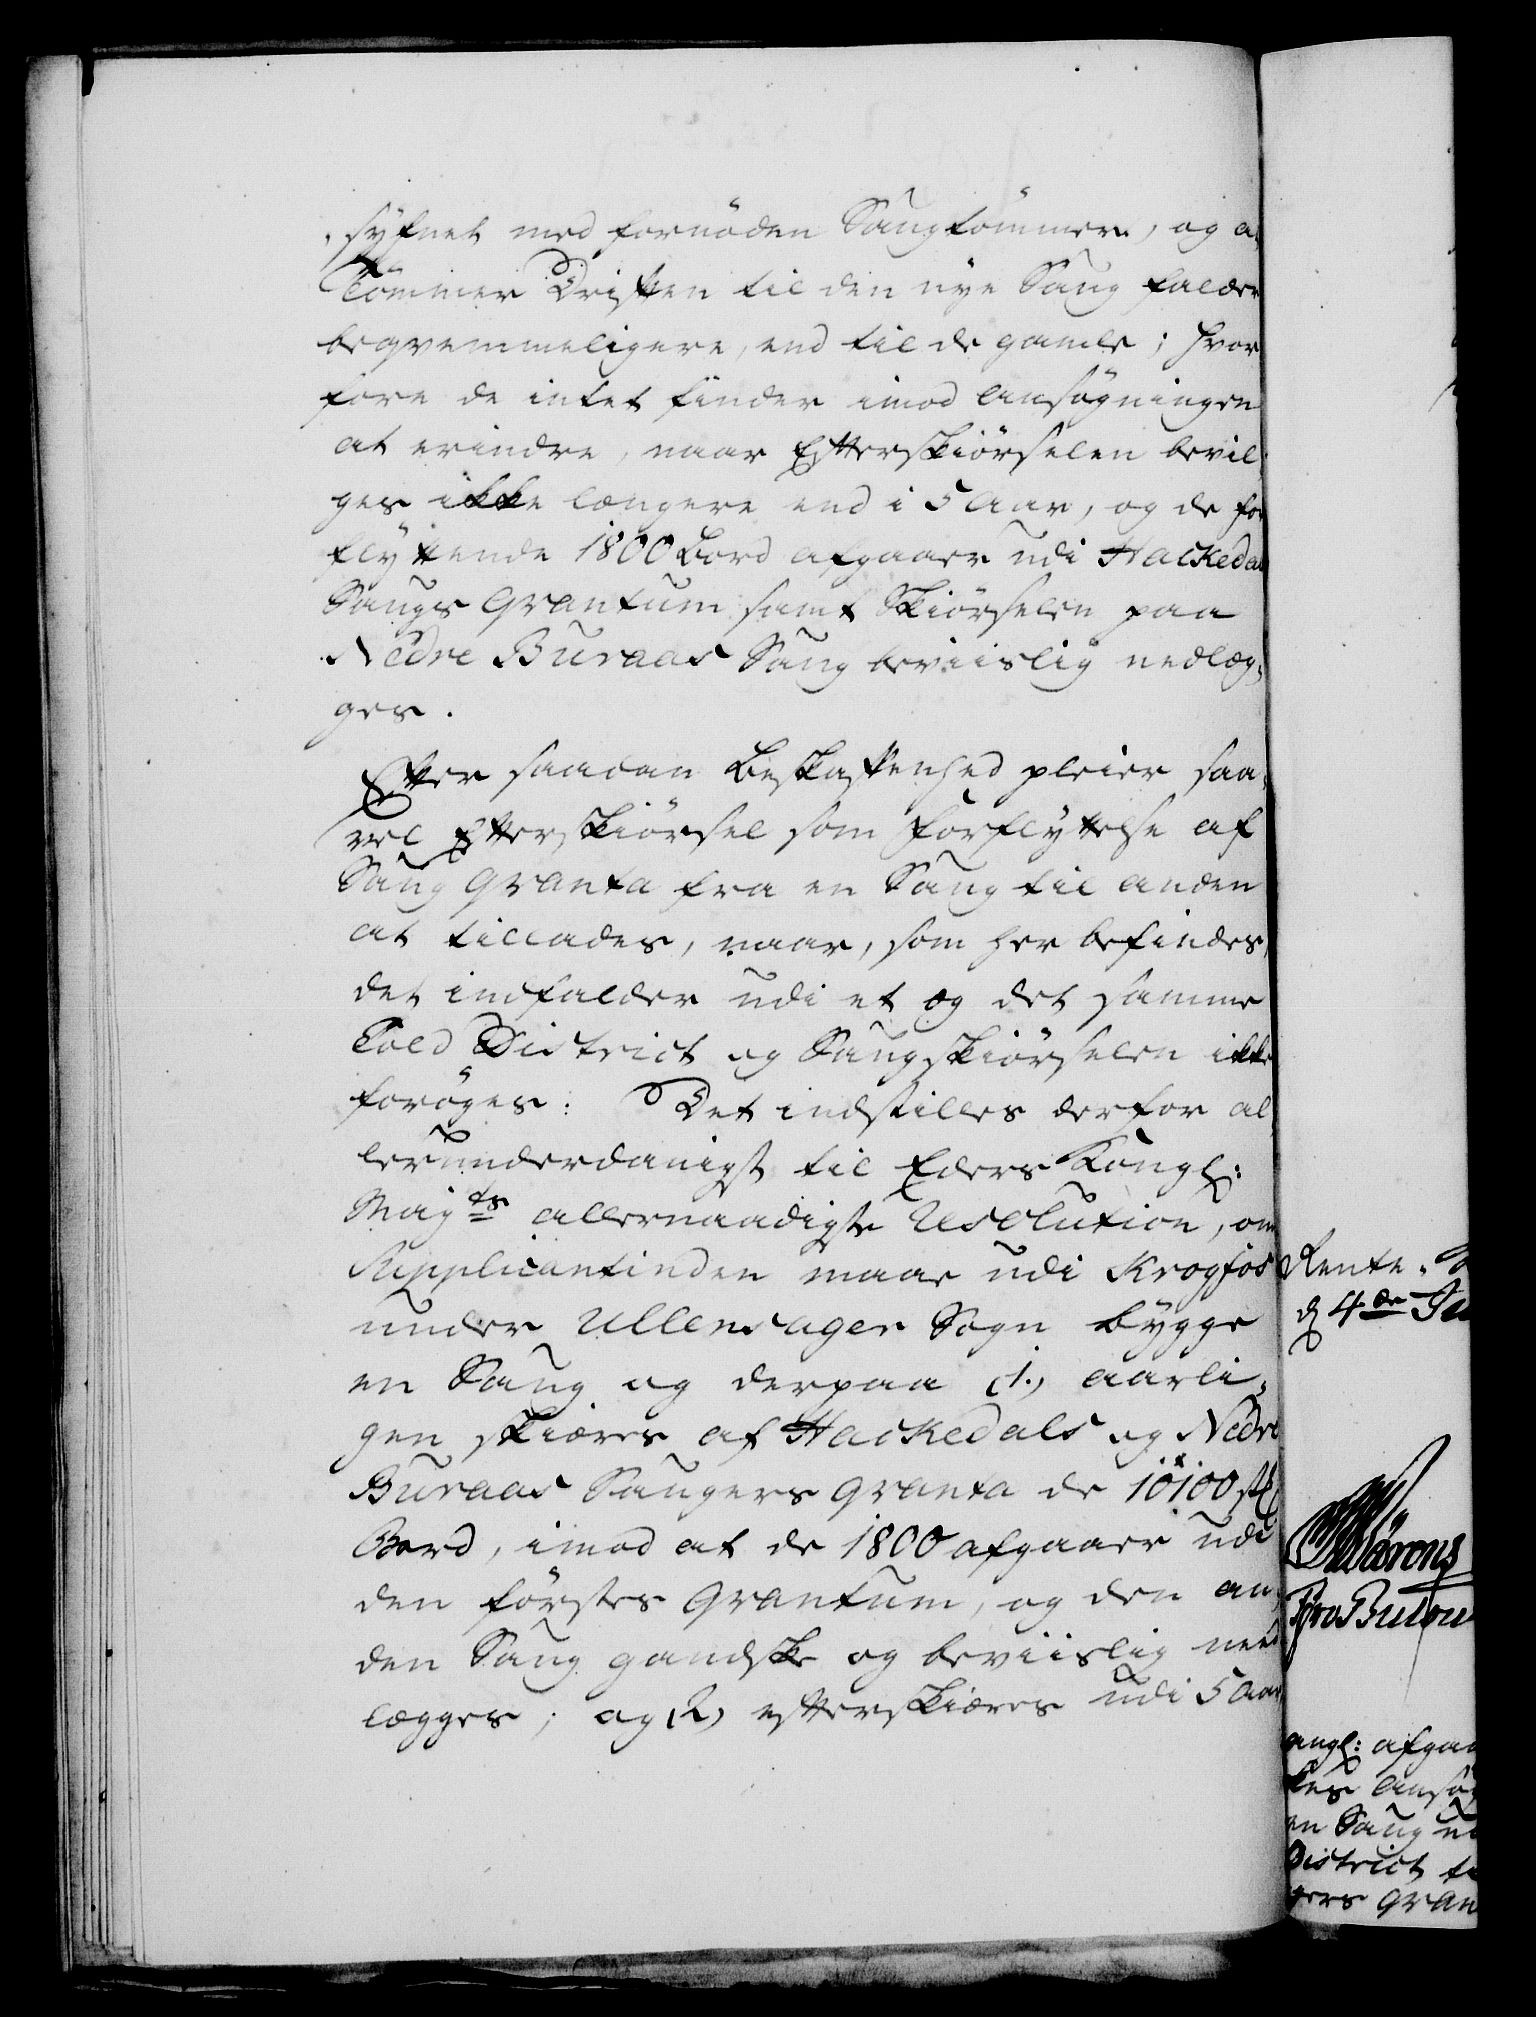 syfnet med fornöden Saugtömmer, og a
Tömmer Driften til den nye Saug falder
beqvemmeligere, end til de gamle; hvor
fore de intet finder imod Ansögningen
at erindre, naar Efterskiörselen bevil,
ges ikke længere end i 5 Aar, og de for
flyttende 1800 Bord afgaaer udi Hackedal
Saugs Qvantum samt Skiörselen paa
Nedre Buraas Saug beviislig nedlæg,
ges.
Efter saadan Beskaffenhed pleier saa,
vel Efterskiörsel som Forflyttelse af
Saug Qvanta fra en Saug til anden
at tillades, naar, som her befindes,
det indfalder udi et og det samme
Told District og Saugskiörselen ikke
foröges: Det indstilles derfor al
lerunderdanigst til Eders Kongl:
Majts allernaadigste Resolution, om
Supplicantinden maae udi Krogfos
under Ullensager Sogn bygge
en Saug og derpaa 1., aarli,
gen skiæres af Hackedals og Nedre
Buraas Saugers Qvanta de 10100 st
Bord, imod at de 1800 afgaaer udi
den förstes Qvantum, og den an,
den Saug gandske og beviislig ned
lægges; og 2, efterskiæres udi 5 Aar
Rente,
d 4de Ju
angl: afgaa
kes Ansög
en Saug u
District f
gers Qvan